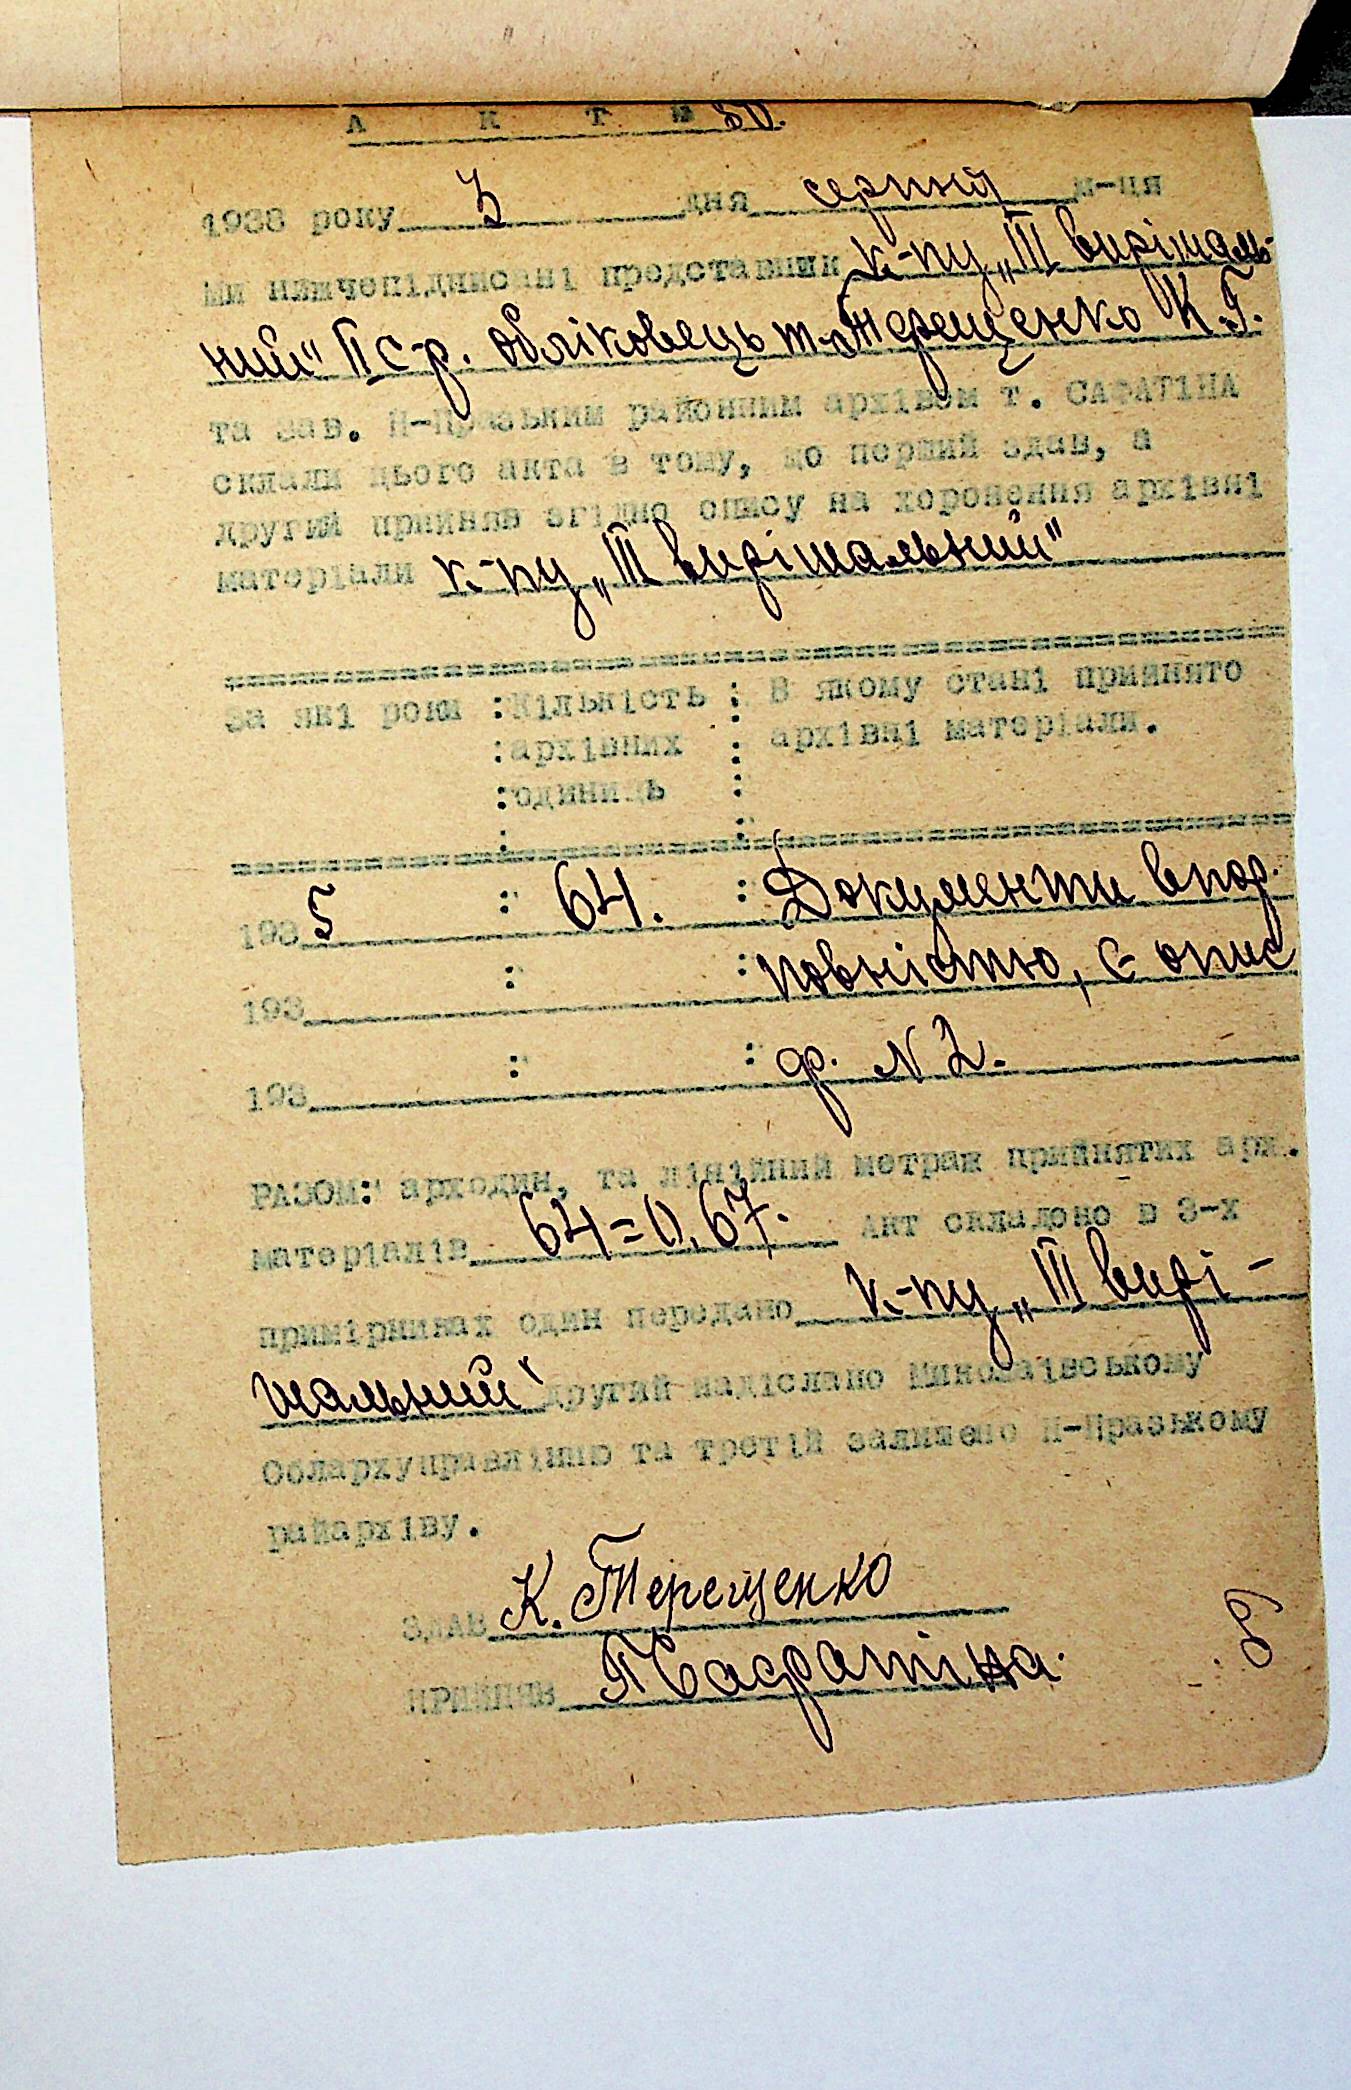 А К Т № 80.
1938 року 3 дня серпня м-ця
Ми нижчепідписані представник к-пу „ІІІ вирішаль-
ний" ІІ с-р. обліковець т. Терещенко К. Г.
та зав. Н-Празьким районним архівом т. САФАТІНА
склали цього акта в тому, що перший здав, а
другий прийняв згідно опису на хоронення архівні
матеріали к-пу „ІІІ вирішальний"
За які роки : Кількість : В якому стані прийнято
: архівних : архівні матеріали.
: одиниць :
1935 : 64. : Документи впор.
193 : : повністю, є опис
193 : : ф. N 2.
РАЗОМ: арходин, та лінійний метраж прийнятих арх.
матеріалів 64=0,67. Акт складено в 3-х
примірниках один передано к-пу „ІІІ вирі-
шальний" другий надіслано Миколаївському
Облархуправлінню та третій залишено Н-Празькому
райархіву.
ЗДАВ К. Терещенко
ПРИЙНЯВ Сафатіна.